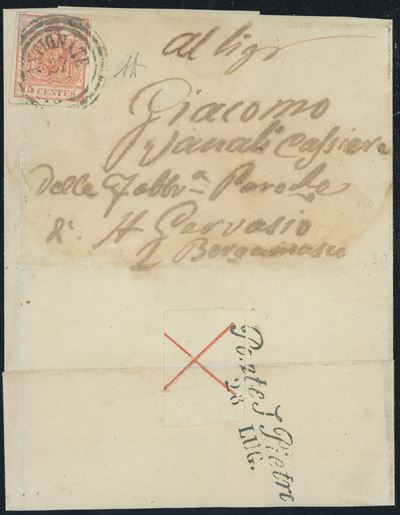 15 CENTES
Al Sigr
Giacomo
Vanali Cassiere
della Fabbra Parodi
di St Gervasio
Bergamasco
Ponte S. Pietro
23
LUG.